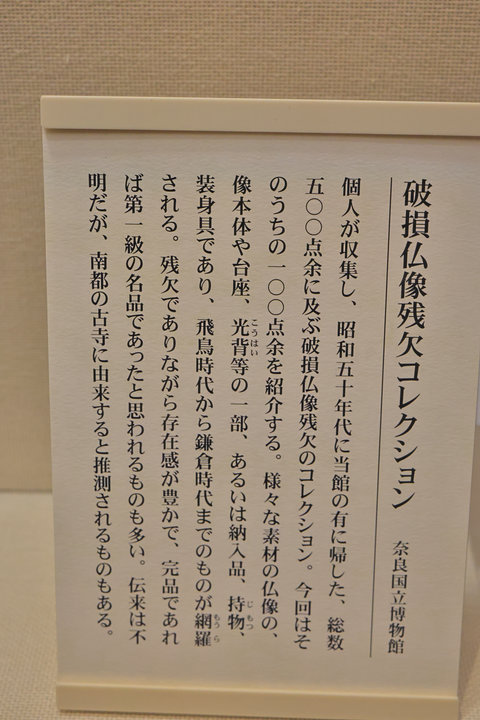 破損仏像残欠コレクション
奈良国立博物館
個人が収集し、昭和五十年代に当館の有に帰した、総数
五〇〇点余に及ぶ破損仏像残欠のコレクション。今回はそ
のうちの一〇〇点余を紹介する。様々な素材の仏像の、
像本体や台座、光背等の一部、あるいは納入品、持物、
装身具であり、飛鳥時代から鎌倉時代までのものが網羅
される。残欠でありながら存在感が豊かで、完品であれ
ば第一級の名品であったと思われるものも多い。伝来は不
明だが、南都の古寺に由来すると推測されるものもある。